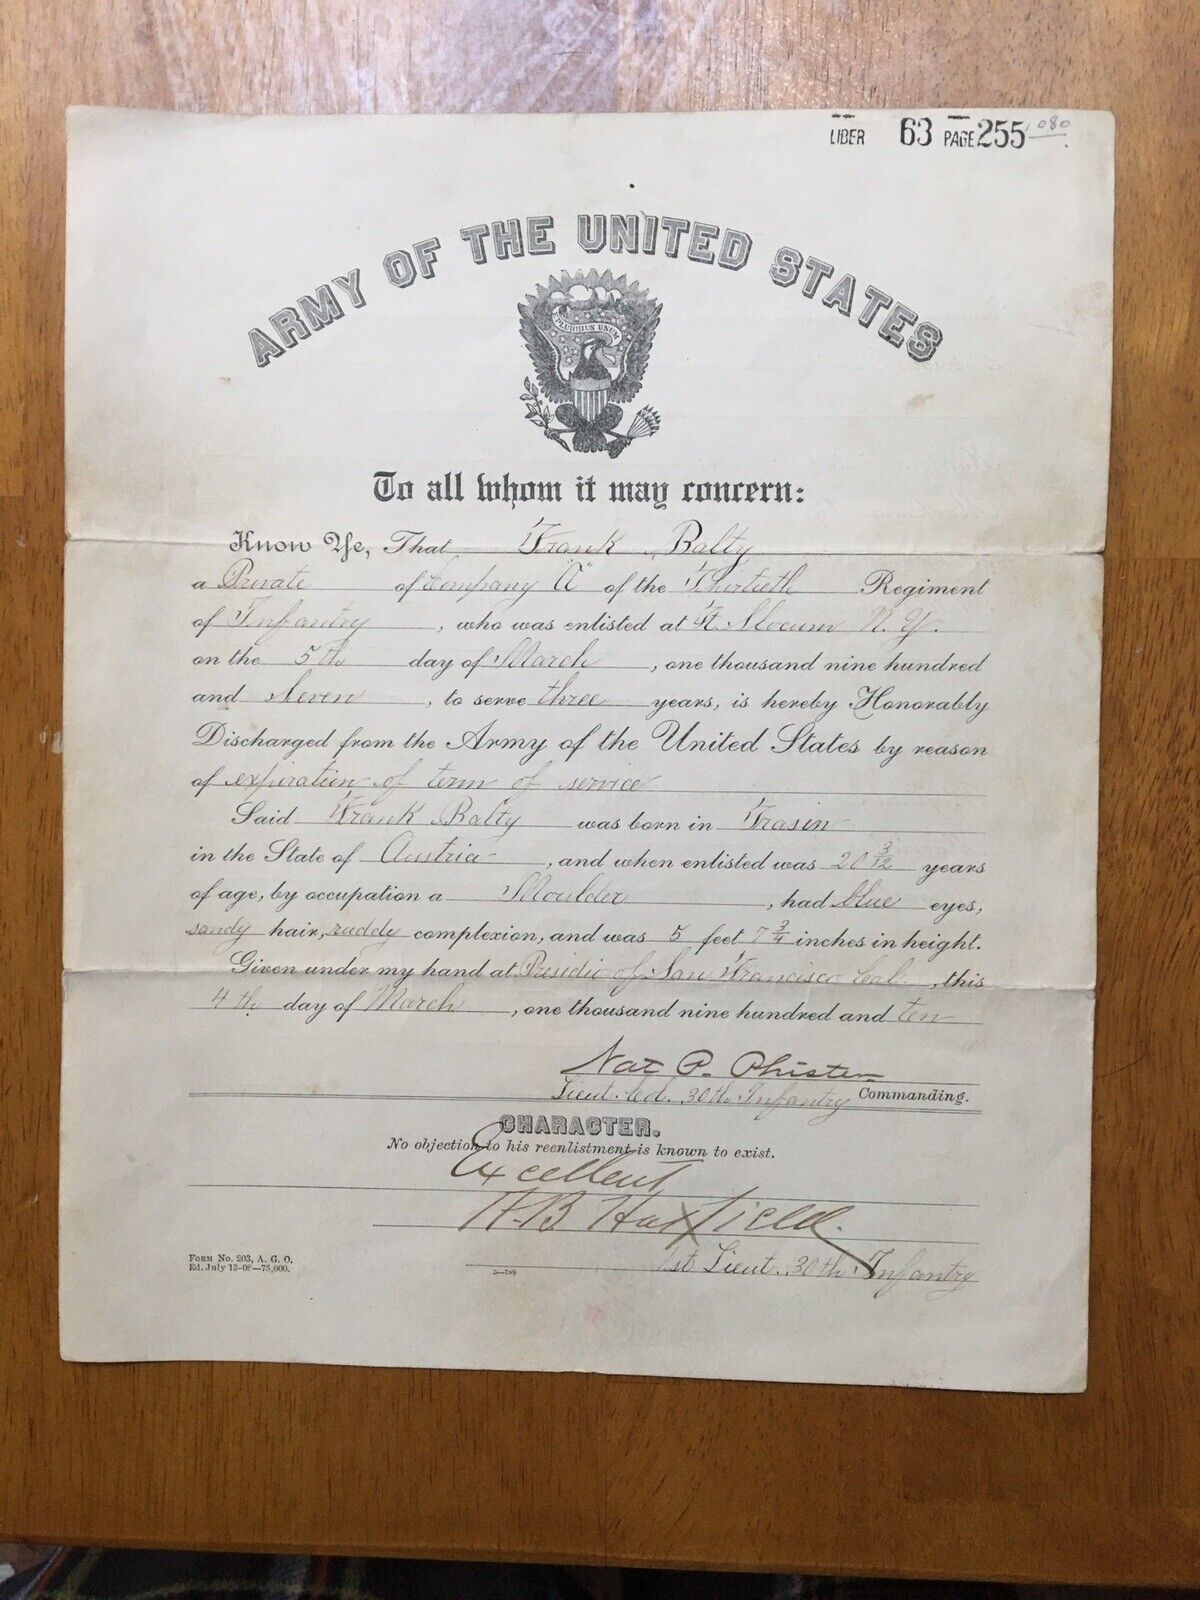 LIBER 63 PAGE 255 080
ARMY OF THE UNITED STATES
PLURIBUS UNUM
To all whom it may concern:
Know Ye, That Frank Balty
a Private of Company "A" of the Thirtieth Regiment
of Infantry, who was enlisted at Ft. Slocum N.Y.
on the 5th day of March, one thousand nine hundred
and Seven, to serve three years, is hereby Honorably
Discharged from the Army of the United States by reason
of expiration of term of service
Said Frank Balty was born in Trasin
in the State of Austria, and when enlisted was 20 3/12 years
of age, by occupation a Moulder, had blue eyes,
sandy hair, ruddy complexion, and was 5 feet 7 3/4 inches in height.
Given under my hand at Presidio of San Francisco Cal., this
4th day of March, one thousand nine hundred and ten
Nat P. Phister
Lieut. Col. 30th Infantry Commanding.
CHARACTER.
No objection to his reenlistment is known to exist.
Excellent
H.B Hatfield.
1st Lieut. 30th Infantry
Form No. 203, A. G. O.
Ed. July 13-08—75,000.
3—789